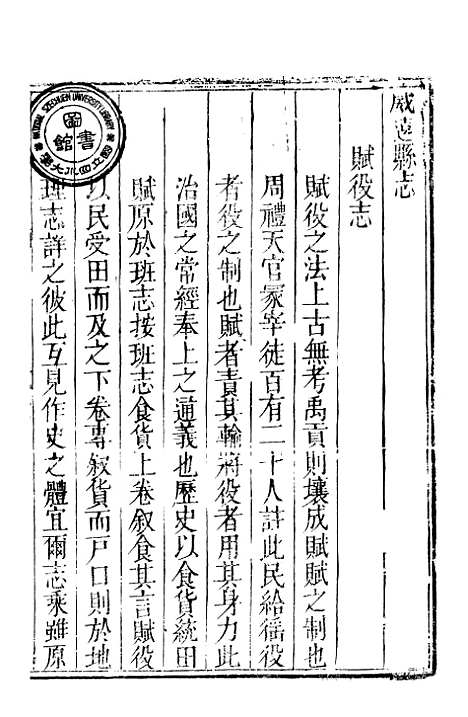 威遠縣志
賦役志
賦役之法上古無考禹貢則壤成賦賦之制也
周禮天官冢宰徒百有二十人註此民給徭役
者役之制也賦者責其輸將役者用其身力此
治國之常經奉上之通義也歷史以食貨統田
賦原於班志按班志食貨上卷叙食其言賦役
以民受田而及之下卷專叙貨而戸口則於地
理志詳之彼此互見作史之體宜爾志乘雖原
圖書館
國立四川大學
NATIONAL SZECHUEN UNIVERSITY LIBRARY